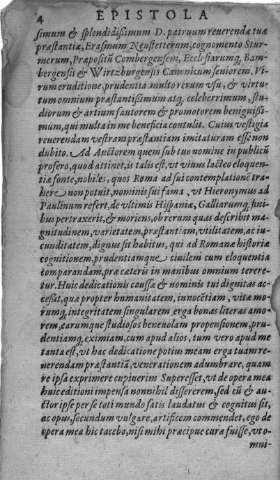 4 EPISTOLA
simum & splendidissimum D. patruum reuerendæ tuæ
præstantiæ, Erasmum Neustetterum, cognomento Stur-
merum, Præpositũ Combergensem, Ecclesiarumq; Bam-
bergensis & Wirtzburgensis Canonicum seniorem, Vi-
rum eruditione, prudentia multo rerum vsu, & virtu-
tum omnium præstantissimum atq; celeberrimum, stu-
diorum & artium fautorem & promotorem benignissi-
mum, qui multa in me beneficia contulit. Cuius vestigia
reuerendam vestram præstantiam imitaturam esse non
dubito. Ad Auctorem quem sub tuo nomine in publicũ
profero, quod attinet, is talis est, vt viuus lacteo eloquen-
tiæ fonte, nobiles, quos Roma ad sui contemplationẽ tra-
here non potuit, nominis sui fama, vt Hieronymus ad
Paulinum refert, de vltimis Hispaniæ, Galliarumq; fini-
bus pertraxerit, & moriens, ob rerum quas describit ma-
gnitudinem, varietatem, præstantiam, vtilitatem, ac iu-
cunditatem, dignus sit habitus, qui ad Romanæ historiæ
cognitionem, prudentiamque ciuilem cum eloquentia
comparandam, præ cæteris in manibus omnium terere-
tur. Huic dedicationis caussæ & nominis tui dignitas ac-
cessit, qua propter humanitatem, innocẽtiam, vitæ mo-
rumq; integritatem singularem erga bonas literas amo-
rem, earumque studiosos beneuolam propensionem, pru-
dentiamq; eximiam, cum apud alios, tum vero apud me
tanta est, vt hac dedicatione potius meam erga tuam re-
uerendam præstantiã, venerationem adumbrare, quam
re ipsa exprimere cupiuerim. Superesset, vt de opera mea
huic editioni impensa nonnihil dissererem, sed cũ & au-
ctor ipse per se toti mundo satis laudatus & cognitus sit,
ac opus, secundum vulgare, artificem commendet, ego de
opera mea hic tacebo, nisi mihi præcipue curæ fuisse, vt o-
mni-